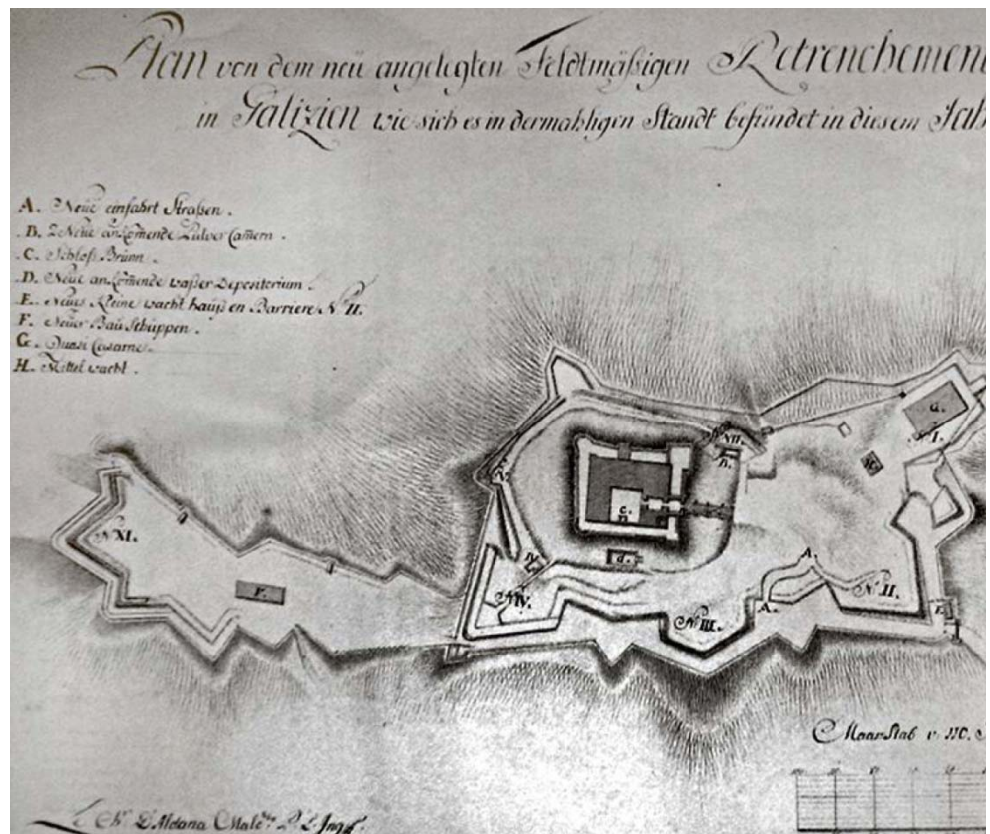 Plan von dem neü angelegten Feldtmäßigen Retrenchemen
in Galizien wie sich es in dermahligen Standt befündet in diesem Jah
A. Neüe einfahrt Straßen.
B. 2 Neüe ankom̅ende Pulver Cam̅ern.
C. Schloß Brunn.
D. Neüe ankom̅ende waßer Depositorium.
E. Neües Kleine wacht hauß en Barriere No II.
F. Neüer Bau Schuppen.
G. Quasi Casarne.
H. Mittel wacht.
G.
I.
VII.
H.
B.
C.
N XI.
d.
F.
A.
N IV.
N II.
A.
N III.
E.
Maas Stab v 110.
D'Aldana